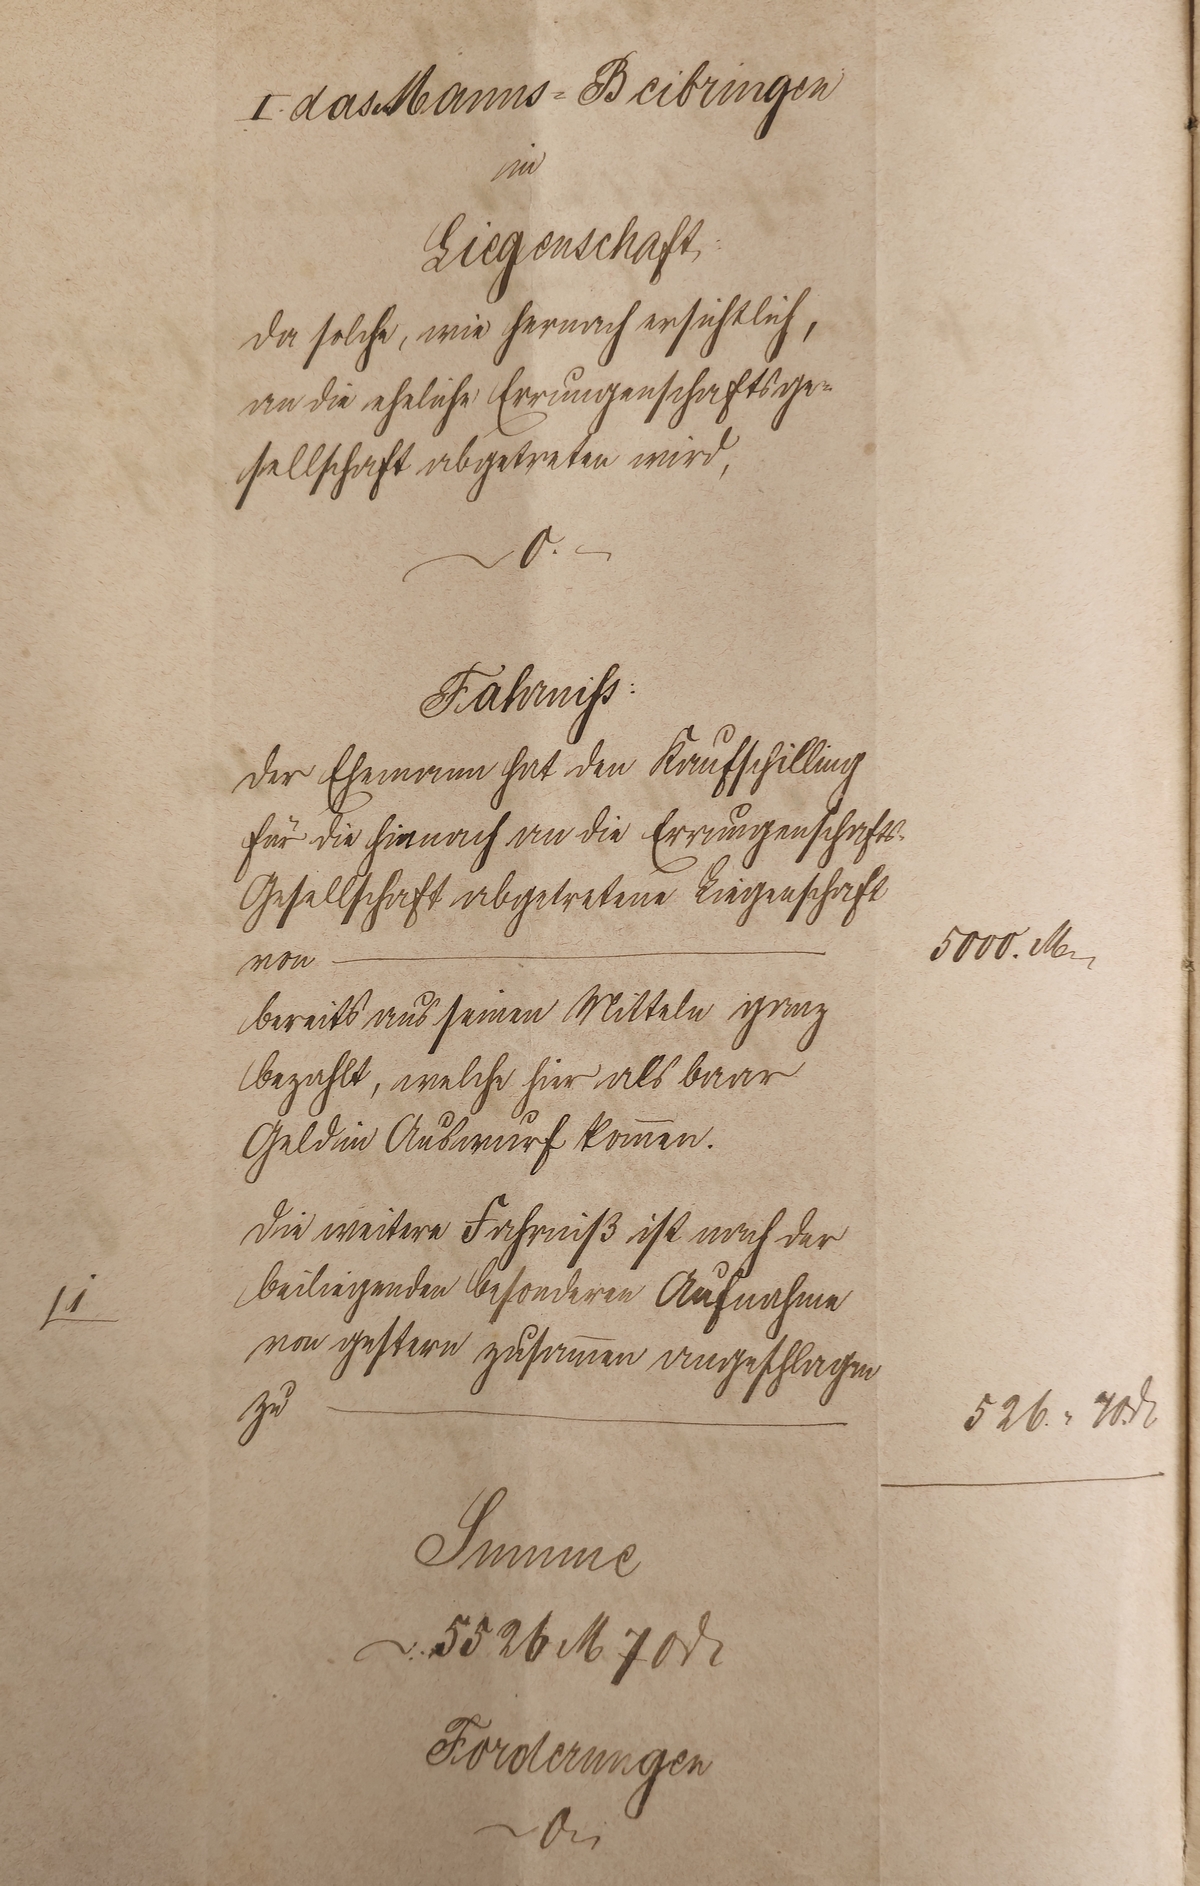 I. das Manns-Beibringen
in
Liegenschaft:
da solche, wie hernach ersichtlich,
an die eheliche Errungenschaftsge-
sellschaft abgetreten wird,
0.
Fahrniss:
Der Ehemann hat den Kaufschilling
für die hienach an die Errungenschafts-
Gesellschaft abgetretene Liegenschaft
von 5000. M
bereits aus seinen Mitteln ganz
bezahlt, welche hier als baar
Geld in Auswurf kom̅en.
Die weitere Fahrniß ist nach der
beiliegenden besonderen Aufnahme
von gestern zusam̅en angeschlagen
zu 526. " 70 ₰
Summe
5526 M 70 ₰
Forderungen
0